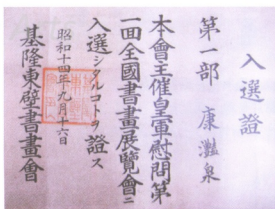 入選證
第一部 康灩泉
本會主催皇軍慰問第
一回全國書畫展覽會ニ
入選シタルコトヲ證ス
昭和十四年九月十六日
基隆東壁書畫會